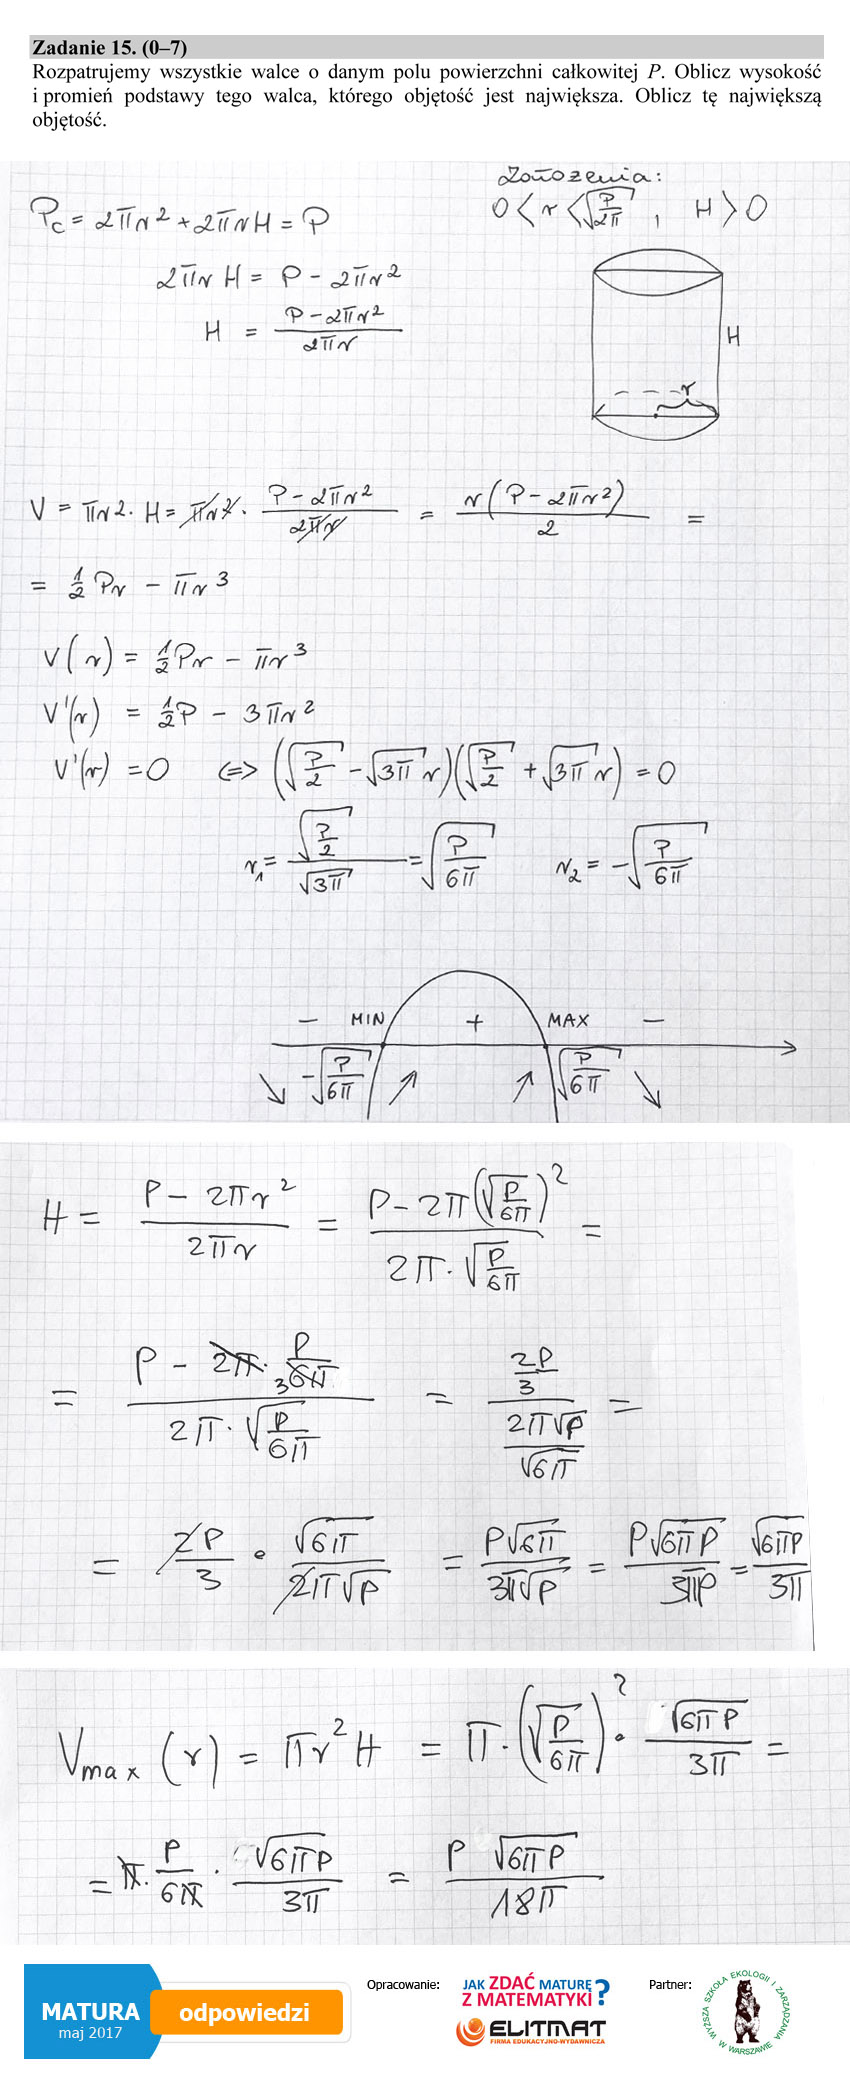 Zadanie 15. (0–7)
Rozpatrujemy wszystkie walce o danym polu powierzchni całkowitej P. Oblicz wysokość
i promień podstawy tego walca, którego objętość jest największa. Oblicz tę największą
objętość.
Założenia:
P_c = 2πr² + 2πrH = P
0 < r < √(P/2π) , H > 0
2πr H = P − 2πr²
H = (P − 2πr²)/(2πr)
H
r
V = πr² · H = πr² · (P − 2πr²)/(2πr) = r(P − 2πr²)/2 =
= ½ Pr − πr³
V(r) = ½Pr − πr³
V'(r) = ½P − 3πr²
V'(r) = 0 <=> (√(P/2) − √(3π) r)(√(P/2) + √(3π) r) = 0
r₁ = √(P/2)/√(3π) = √(P/6π) r₂ = −√(P/6π)
− MIN + MAX −
−√(P/6π) √(P/6π)
H = (P − 2πr²)/(2πr) = (P − 2π(√(P/6π))²)/(2π · √(P/6π)) =
= (P − 2π · P/(6π))/(2π · √(P/6π)) = (2P/3)/(2π√P/√(6π)) =
= 2P/3 · √(6π)/(2π√P) = P√(6π)/(3π√P) = P√(6πP)/(3πP) = √(6πP)/(3π)
V_max (r) = πr²H = π · (√(P/6π))² · √(6πP)/(3π) =
= π · P/(6π) · √(6πP)/(3π) = P √(6πP)/(18π)
MATURA
maj 2017
odpowiedzi
Opracowanie:
JAK ZDAĆ MATURĘ
Z MATEMATYKI?
ELITMAT
FIRMA EDUKACYJNO-WYDAWNICZA
Partner:
WYŻSZA SZKOŁA EKOLOGII I ZARZĄDZANIA
W WARSZAWIE